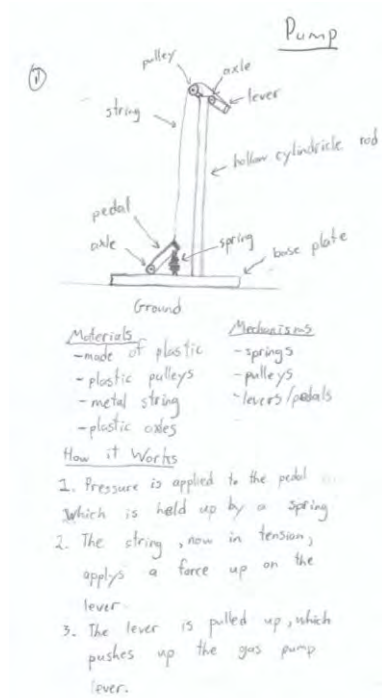 Pump
1)
pulley
axle
lever
string
hollow cylindricle rod
pedal
axle
spring
base plate
Ground
Materials
-made of plastic
-plastic pulleys
-metal string
-plastic axles
Mechanisms
-springs
-pulleys
-levers/pedals
How it Works
1. Pressure is applied to the pedal
which is held up by a spring
2. The string, now in tension,
applys a force up on the
lever
3. The lever is pulled up, which
pushes up the gas pump
lever.